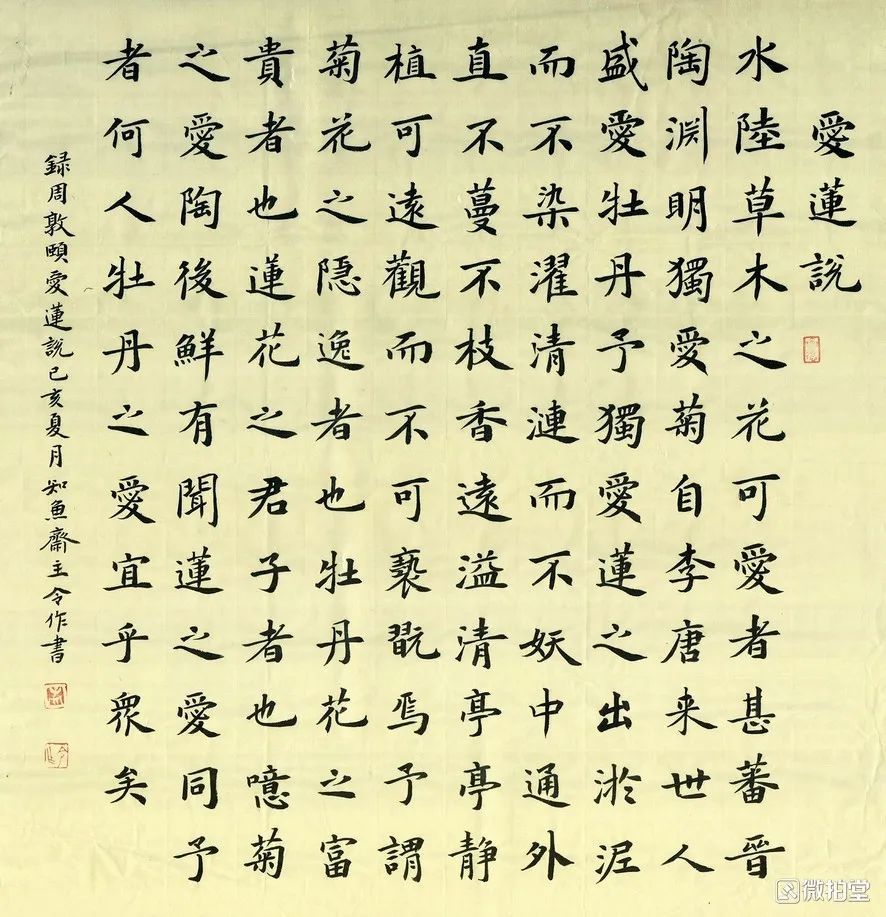 愛蓮説
水陸草木之花可愛者甚蕃晉
陶渊明獨愛菊自李唐来世人
盛愛牡丹予獨愛蓮之出淤泥
而不染濯清漣而不妖中通外
直不蔓不枝香遠溢清亭亭静
植可遠觀而不可褻翫焉予謂
菊花之隠逸者也牡丹花之富
貴者也蓮花之君子者也噫菊
之愛陶後鮮有聞蓮之愛同予
者何人牡丹之愛宜乎眾矣
録周敦頤愛蓮説己亥夏月知魚齋主令作書
微拍堂